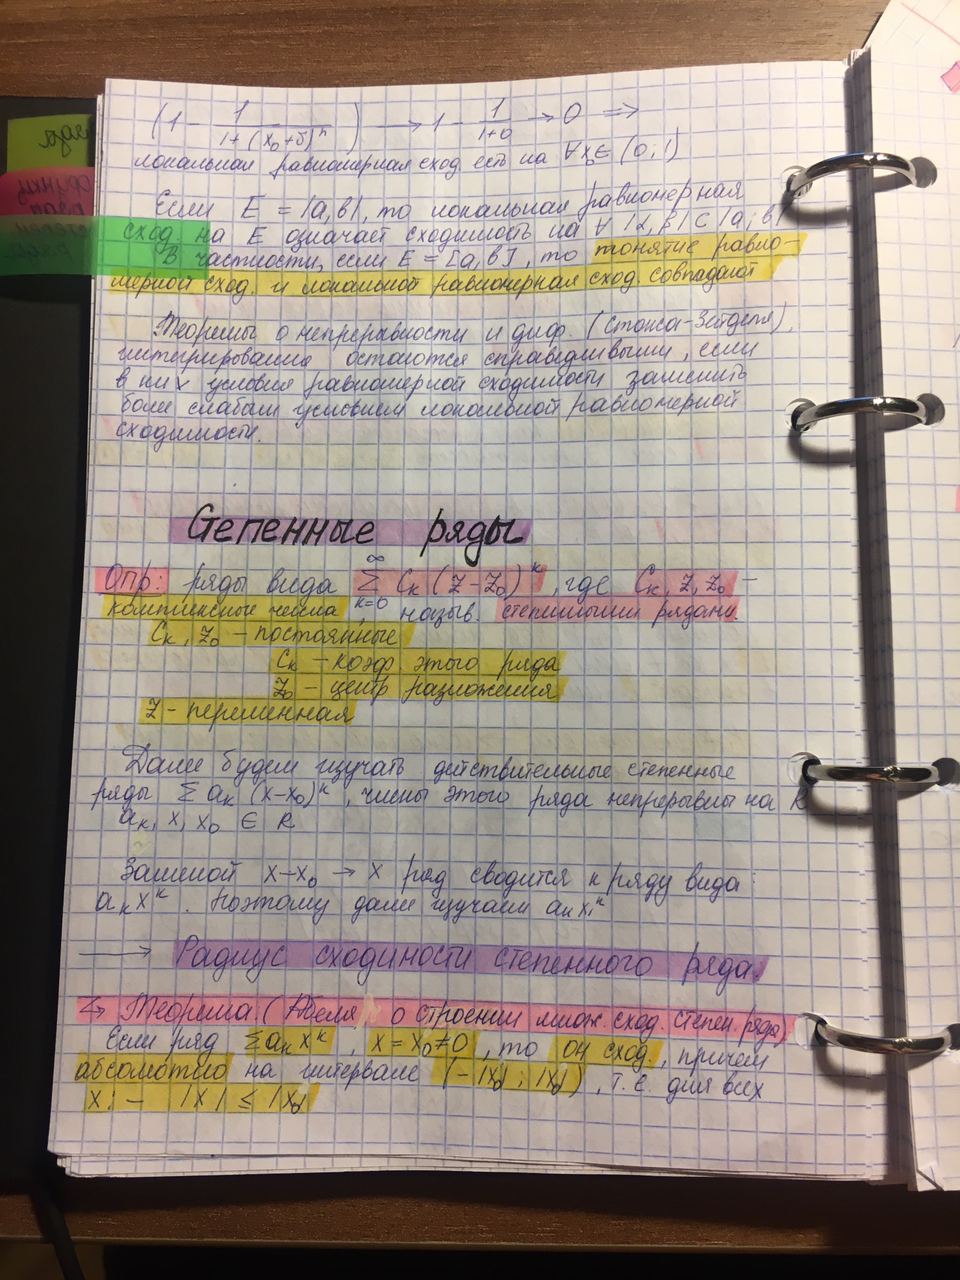 (1 - 1/(1+(x₀+δ)ⁿ)) → 1 - 1/(1+0) → 0 ⇒
локальная равномерная сход. есть на ∀ x ∈ (0;1)
Если E = |a,b|, то локальная равномерная
сход на E означает сходимость на ∀ |α,β| ⊂ |a;b|
В частности, если E = [a,b], то понятие равно-
мерной сход. и локальной равномерная сход. совпадают
Теоремы о непрерывности и диф. (Стокса-Зейделя),
интегрирования остаются справедливыми, если
в них условия равномерной сходимости заменить
более слабым условием локальной равномерной
сходимости.
Степенные ряды
Опр: ряды вида ∑_{k=0}^{∞} Cₖ (z-z₀)ᵏ, где Cₖ, z, z₀ -
комплексные числа, назыв. степенными рядами.
Cₖ, z₀ - постоянные
Cₖ - коэф этого ряда
z₀ - центр разложения
z - переменная
Далее будем изучать действительные степенные
ряды ∑ aₖ (x-x₀)ᵏ, члены этого ряда непрерывны на R
aₖ, x, x₀ ∈ R
Заменой x-x₀ → x ряд сводится к ряду вида
aₖxᵏ. Поэтому далее изучаем aₖxᵏ
→ Радиус сходимости степенного ряда.
Теорема. (Абеля о строении множ. сход. степен. ряда)
Если ряд ∑aₖxᵏ, x = x₀ ≠ 0, то он сход., причем
абсолютно на интервале (-|x₀|; |x₀|), т.е. для всех
x: - |x| ≤ |x₀|